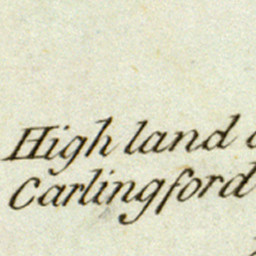 High land
Carlingford